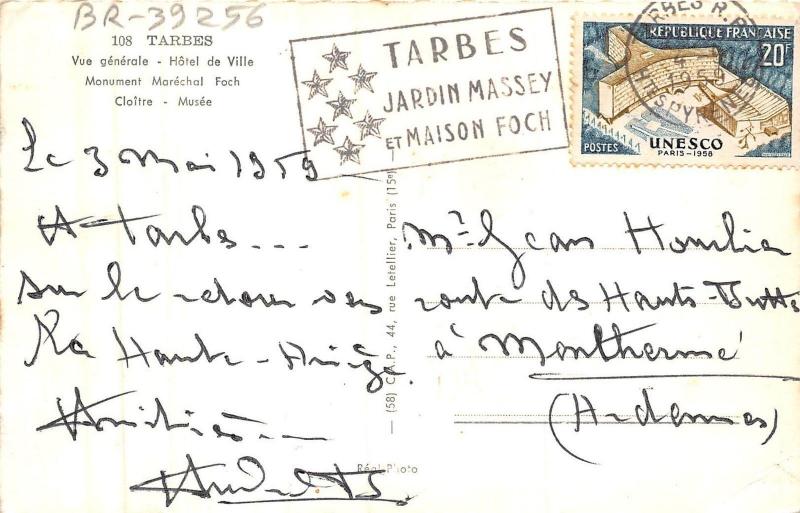 BR-39256
108 TARBES
Vue générale - Hôtel de Ville
Monument Maréchal Foch
Cloître - Musée
TARBES
JARDIN MASSEY
ET MAISON FOCH
RÉPUBLIQUE FRANÇAISE
20F
POSTES
UNESCO
PARIS-1958
Le 3 Mai 1959
A Tarbes...
sur le retour vers
la Haute-Ariège.
Amitiés
(58) C.A.P., 44, rue Letellier, Paris (15e)
Réal-Photo
Mr Jean
route des Hauts-Buttés
à Monthermé
(Ardennes)